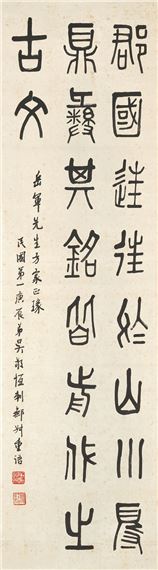 郡國往往於山川得
鼎彝其銘皆前代之
古文
岳軍先生方家正瑑
民國第一庚辰弟吳敬恆